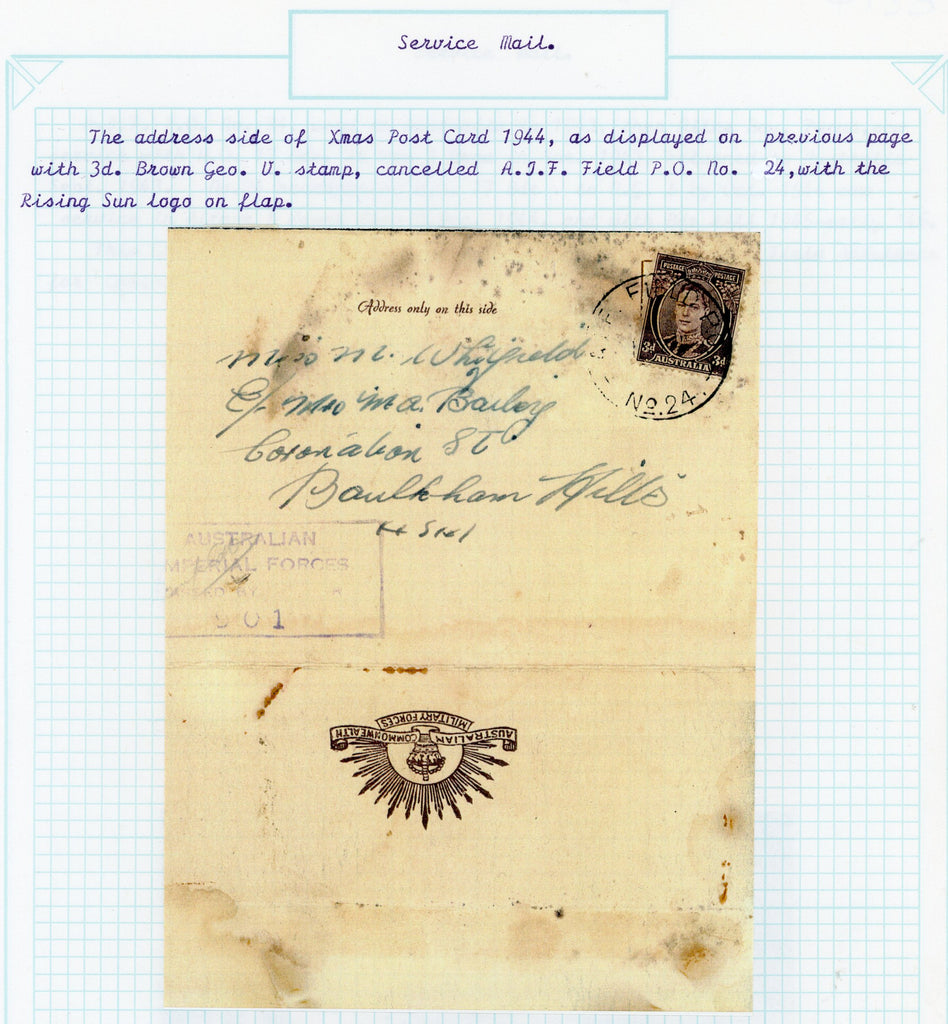 Service Mail.
The address side of Xmas Post Card 1944, as displayed on previous page
with 3d. Brown Geo. V. stamp, cancelled A.I.F. Field P.O. No. 24, with the
Rising Sun logo on flap.
POSTAGE POSTAGE
3d 3d
AUSTRALIA
FIELD
No. 24.
Address only on this side
Miss M. Whitfield
C/. Mrs M.A.
Coronation St
Baulkham Hills
AUSTRALIAN
IMPERIAL FORCES
PASSED BY
901
AUSTRALIAN COMMONWEALTH
MILITARY FORCES